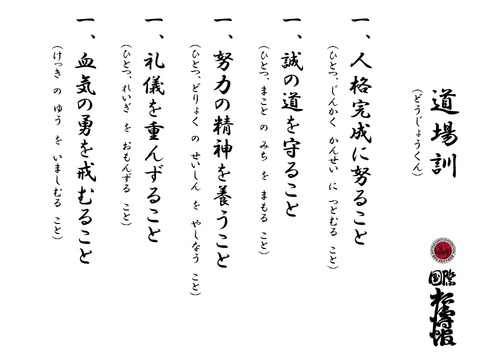 道場訓
(どうじょうくん)
国際
松濤館
一、人格完成に努ること
(ひとつ、じんかく かんせい に つとむる こと)
一、誠の道を守ること
(ひとつ、まこと の みち を まもる こと)
一、努力の精神を養うこと
(ひとつ、どりょく の せいしん を やしなう こと)
一、礼儀を重んずること
(ひとつ、れいぎ を おもんずる こと)
一、血気の勇を戒むること
(けっき の ゆう を いましむる こと)